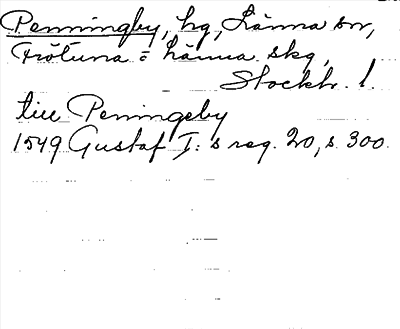 Penningby, hg, Länna sn,
Frötuna o Länna skg,
Stockh. l.
till Peningeby
1549 Gustaf I: s reg. 20, s. 300.